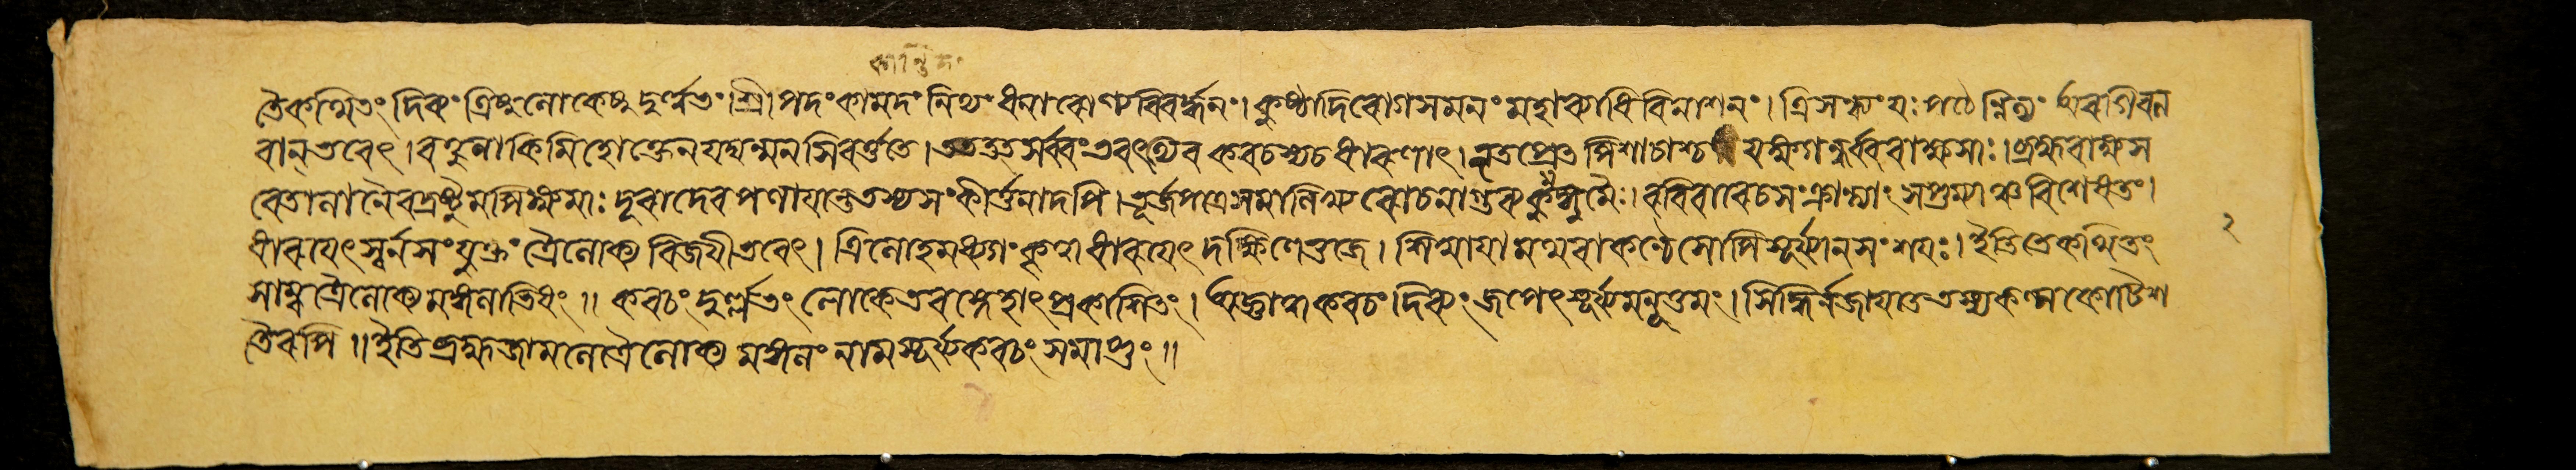 কান্তিদং
তে কথিতং দিব্যং ত্রিষু লোকেষু দুর্ল্লভং। শ্রীপদং কামদং নিত্যং ধনারোগ্যবিবর্দ্ধনং। কুষ্ঠাদিরোগসমনং মহাব্যাধিবিনাশনং। ত্রিসন্ধ্যং যঃ পঠেন্নিত্যং অরোগিবল
বান্ ভবেৎ। বহুনা কিমিহোক্তেন যদ্যন্মনসি বর্ত্ততে। তত্তত্ সর্ব্বং ভবেৎত্যেব কবচস্য চ ধারণাৎ। ভূতপ্রেতপিশাচাশ্চ যক্ষগন্ধর্ব্বরাক্ষসাঃ। ব্রহ্মরাক্ষস
বেতালা নৈব দ্রষ্টুমপি ক্ষমাঃ দূরাদেব পলায়ন্তে তস্য সংকীর্ত্তনাদপি। ভূর্জপত্রে সমালিখ্য রোচনাগুরুকুঙ্কুমৈঃ। রবিবারে চ সংক্রান্ত্যাং সপ্তম্যাঞ্চ বিশেষতঃ।
ধারয়েৎ স্বর্নসংযুক্তং ত্রৈলোক্যবিজয়ী ভবেৎ। ত্রিলোহমধ্যগং কৃত্বা ধারয়েৎ দক্ষিণে ভুজে। শিখায়ামথবা কণ্ঠে সোপি সূর্য্যো ন সংশয়ঃ। ইতি তে কথিতং
সাম্ব ত্রৈলোক্যমঙ্গলাভিধং॥ কবচং দুর্ল্লভং লোকে তব স্নেহাৎ প্রকাশিতং। অজ্ঞাত্বা কবচং দিব্যং জপেৎ সূর্য্যমনূত্তমং। সিদ্ধির্ন জায়তে তস্য কল্পকোটিশ
তৈরপি॥ ইতি ব্রহ্মজামলে ত্রৈলোক্যমঙ্গলং নাম সূর্য্যকবচং সমাপ্তং॥
২